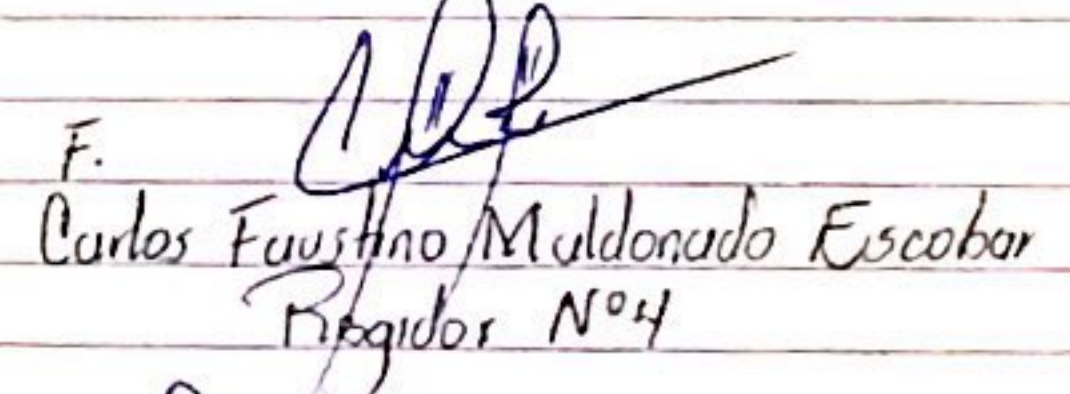 F.
Carlos Faustino Maldonado Escobar
Regidor Nº4